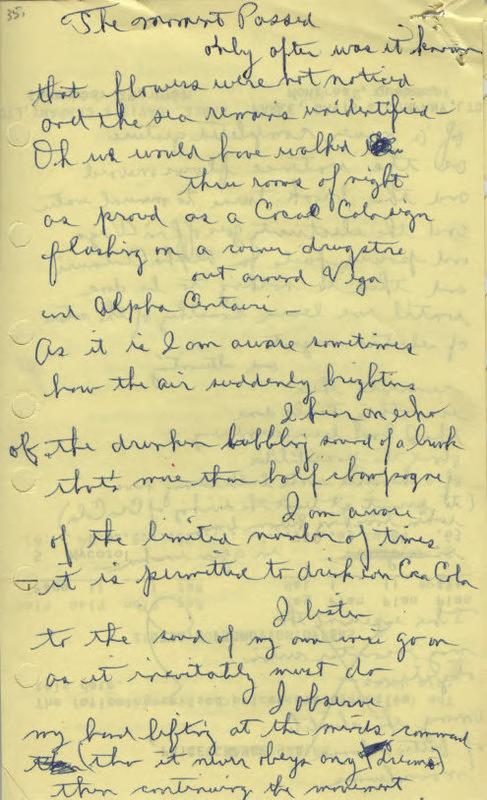 35.
The moment Passed
only after was it known
that flowers were not noticed
and the sea remains unidentified —
Oh we would have walked
thru rooms of night
as proud as a Coca Cola sign
flashing on a corner drugstore
out around Vega
and Alpha Centauri —
As it is I am aware sometimes
how the air suddenly brightens
I hear an echo
of the drunken bubbling sound of a
that's more than half champagne
I am aware
of the limited number of times
it is permitted to drink Coca Cola
I listen
to the sound of my own voice go on
as it inevitably must do
I observe
my hand lifting at the mind's command
(tho it never obeys any (dreams)
then continuing the movement